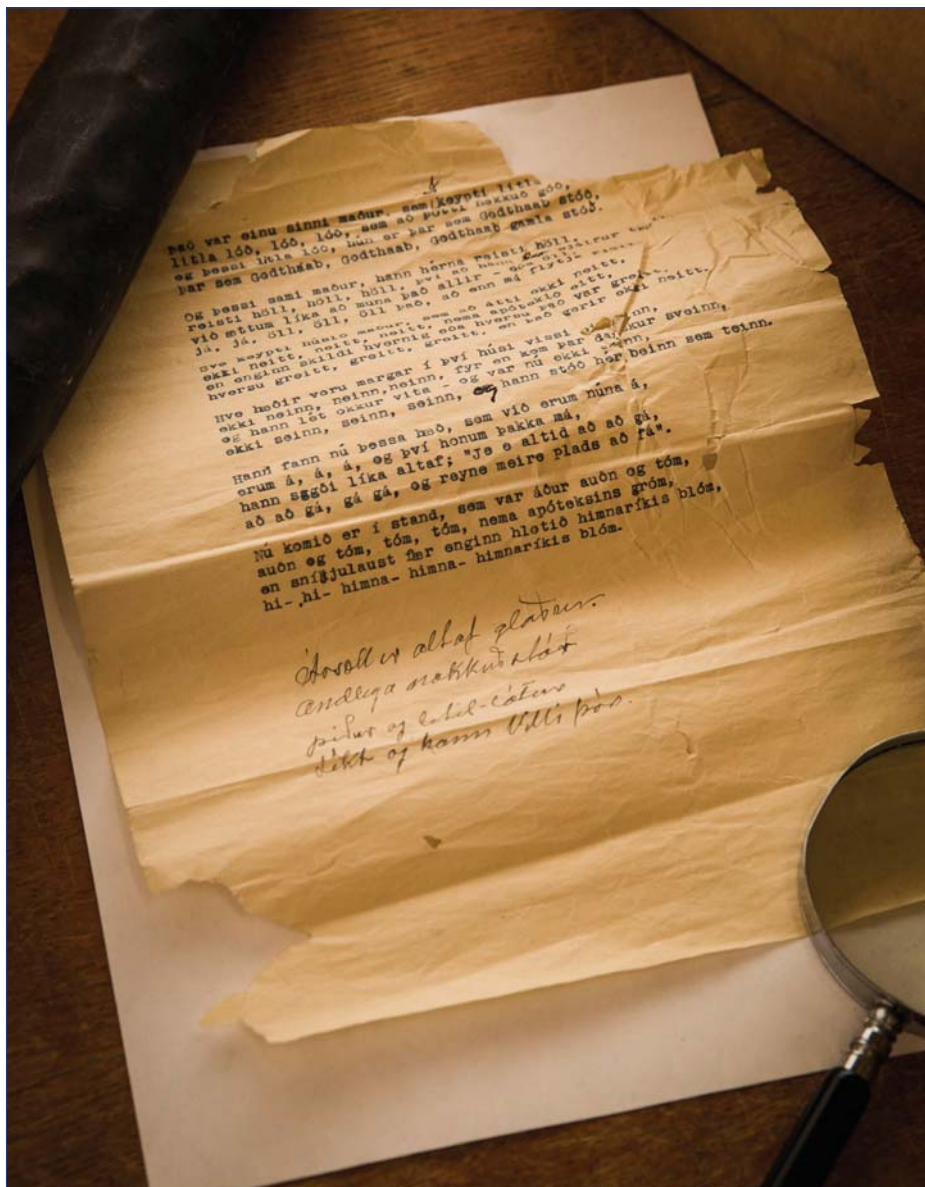 Það var einu sinni maður, sem keypti litla
litla lóð, lóð, lóð, sem að þótti nokkuð góð,
og þessi litla lóð, hún er þar sem Godthaab stóð,
þar sem Godthaab, Godthaab, Godthaab gamla stóð.
Og þessi sami maður, hann hérna reisti höll,
reisti höll, höll, höll, því að hann
við ættum líka að muna það allir -
já, já, öll, öll, öll það, að enn að flytja
Svo keypti húsið maður, sem að átti ekki neitt,
ekki neitt, neitt, neitt, nema apótekið eitt,
en enginn skildi hvernig eða hversu það var greitt,
hversu greitt, greitt, greitt, en það gerir ekki neitt.
Hve hæðir voru margar í því húsi vissi ei neinn,
ekki neinn, neinn, neinn, fyr en kom þar danskur sveinn,
og hann lét okkur vita - og var nú ekki seinn,
ekki seinn, seinn, seinn, og hann stóð hér beinn sem teinn.
Hann fann nú þessa hæð, sem við erum núna á,
erum á, á, á, og því honum þakka má,
hann sagði líka altaf; "Je e altid að að gá,
að að gá, gá gá, og reyne meire plads að fá".
Nú komið er í stand, sem var áður auðn og tóm,
auðn og tóm, tóm, tóm, nema apóteksins gróm,
en sníkjulaust fær enginn hlotið himnaríkis blóm,
hi-, hi- himna- himna- himnaríkis blóm.
er altaf glaður.
andlega nokkuð
þíður og lítil-látur
líkt og hann Villi Þór.